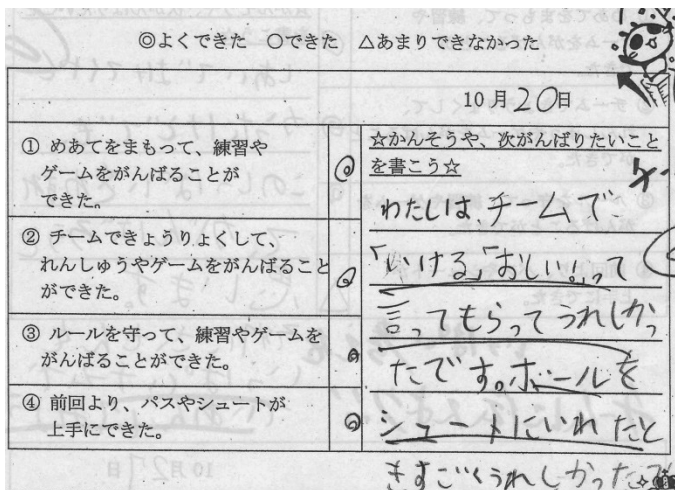 ◎よくできた ○できた △あまりできなかった
10月20日
① めあてをまもって、練習や
ゲームをがんばることが
できた。
◎
② チームできょうりょくして、
れんしゅうやゲームをがんばること
ができた。
◎
③ ルールを守って、練習やゲームを
がんばることができた。
◎
④ 前回より、パスやシュートが
上手にできた。
◎
☆かんそうや、次がんばりたいこと
を書こう☆
わたしは チームで、
「いける」「おしい!」って
言ってもらってうれしかっ
たです。ボールを
シュートにいれたと
きすごくうれしかったで